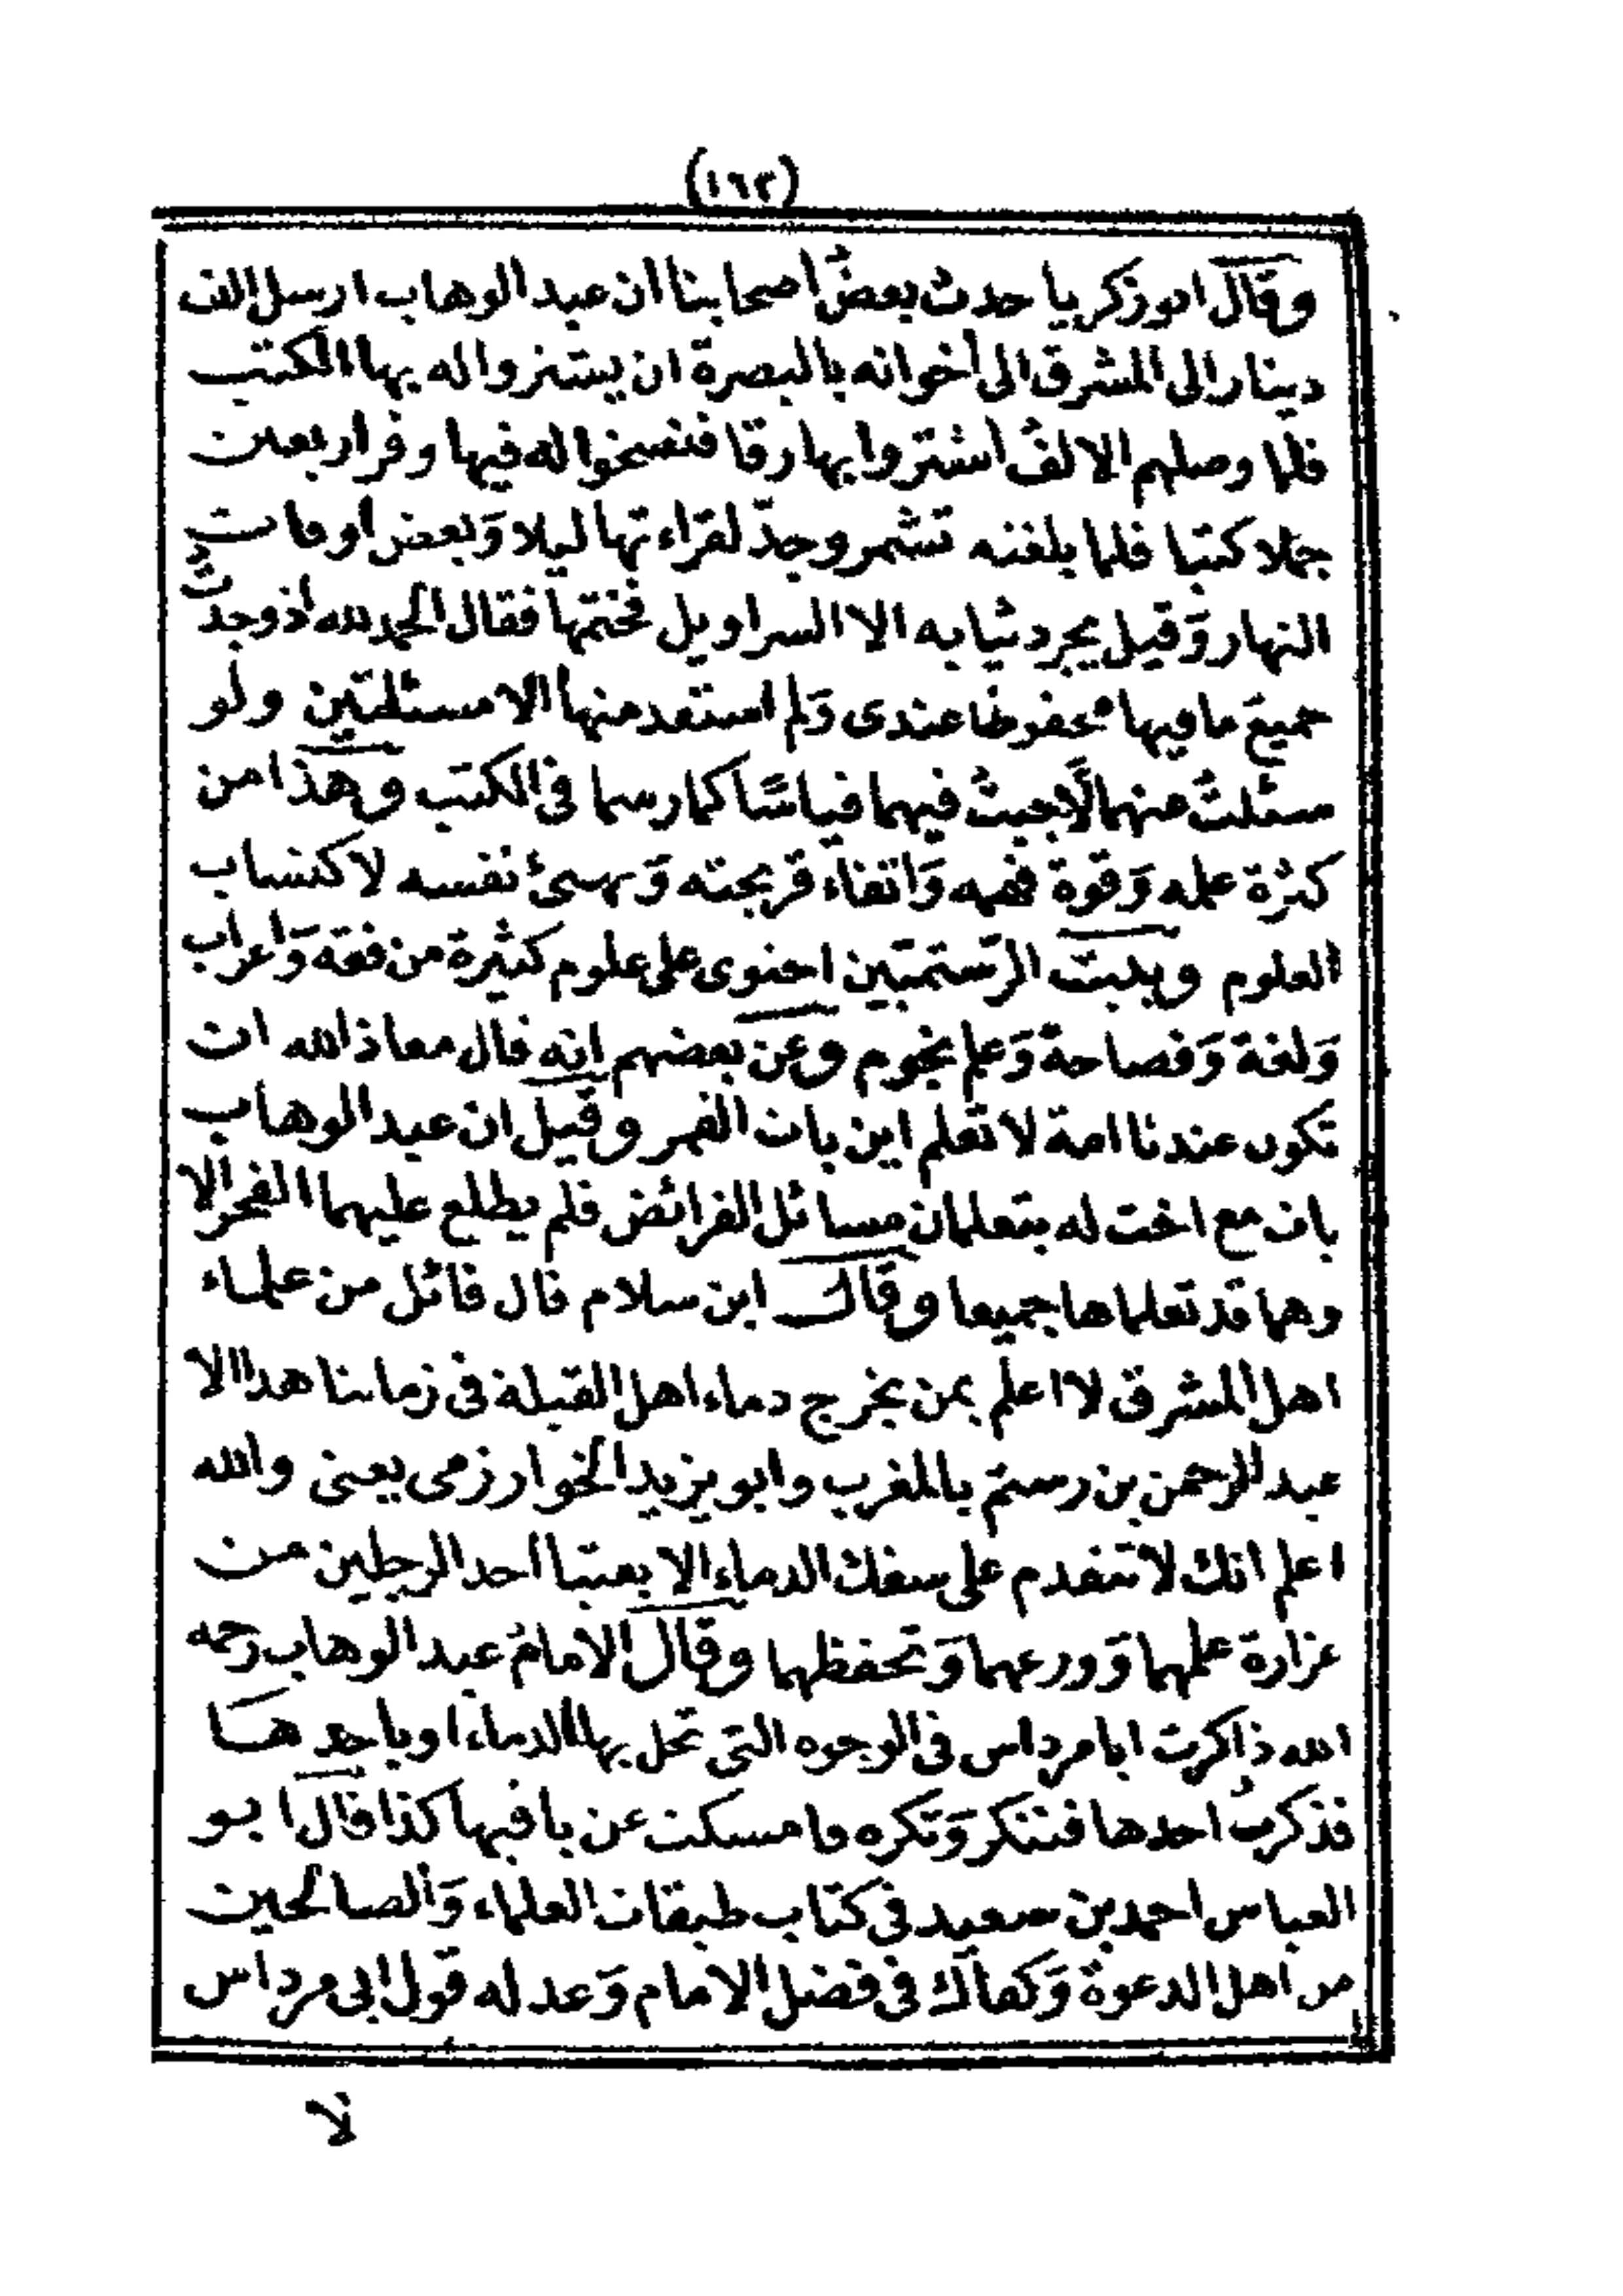 (١٦٢)
وقال ابو زكريا حدث بعضُ اصحابنا ان عبد الوهاب ارسل الف
دينار الى المشرق الى أخوانه بالبصرة ان يشتروا له بها الكتب
فلما وصلهم الالفُ اشتروا بها رقا فنسخوا له فيها وقر اربعين
جملا كتبا فلما بلغته تشمر وجدّ لقراءتها ليلا وَبعض اوقات
النهار وَقيل يجرد ثيابه الا السراويل فختمها فقال الحمد لله اذ وجدتُ
جميعَ ما فيها محفوظا عندى وَلم استفد منها الا مسئلتين ولو
سئلتُ عنهما لَأجبتُ فيهما قياسًا كما رسما فى الكتب وهذا من
كثرة علمه وَقوة فهمه وَاتقاء قريحته وَتهيئ نفسه لاكتساب
العلوم وبيت الرّستميّين احتوى على علوم كثيرة من فقه وَاعراب
وَلغة وَفصاحة وَعلم نجوم وعن بعضهم انه قال معاذ الله ان
تكون عندنا امة لا تعلم اين بات القمر وقيل ان عبد الوهاب
بات مع اخت له يتعلمان مسائل الفرائض فلم يطلع عليهما الفجر الا
وهما قد تعلماها جميعا وقال ابن سلام قال قائل من علماء
اهل المشرق لا اعلم بمن يخرج دماء اهل القبلة فى زماننا هذا الا
عبد الرحمن بن رستم بالمغرب وابو يزيد الخوارزمى يعنى والله
اعلم انك لا تتقدم على سفك الدماء الا بفتيا احد الرجلين من
غزارة علمهما وَورعهما وَتحفظهما وقال الامامُ عبد الوهاب رحمه
الله ذاكرت ابا مرداس فى الوجوه التى تحل بها الدماء او باحدها
فذكرتُ احدها فتنكر وَتكره وامسكت عن باقيها كذا قال ابو
العباس احمد بن سعيد فى كتاب طبقات العلماء وَالصالحين
من اهل الدعوة وَكفاك فى فضل الامام وَعدله قول ابى مرداس
لا